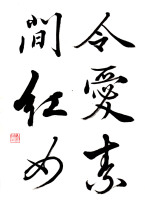 令愛素
間紅女